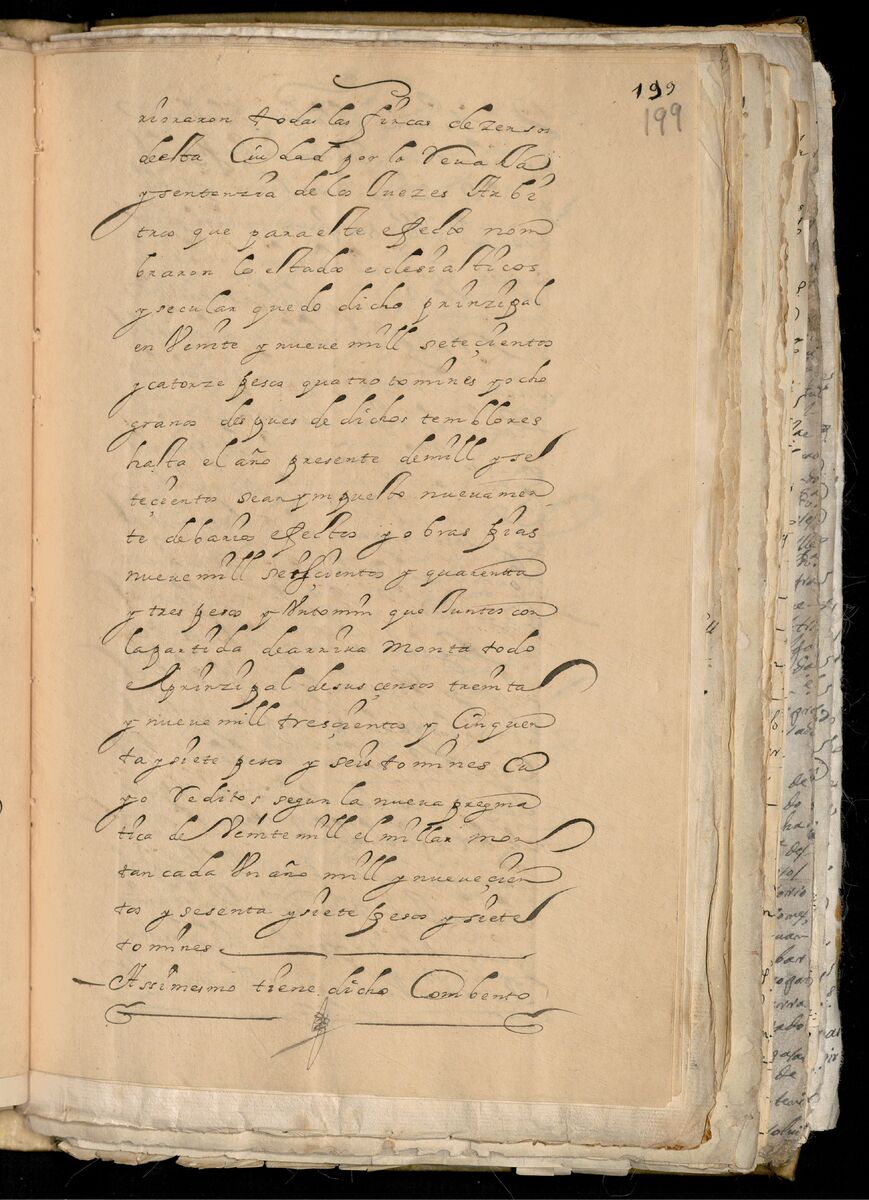 199
199
rioraron todas las fincas de zensos
desta Ciudad por lo Revalla
y sentenzia de los Juezes Arbi
tros que para este efecto nom
braron lo estados eclesiasticos
y secular quedo dicho prinzipal
en Veinte y nueve mill seteçientos
y catorze pesos quatro tomines y ocho
granos despues de dichos temblores
hasta el año presente de mill y se
teçientos sean ympuesto nuevamen
te de barios efectos y obras pias
nueve mill seisçientos y quarentta
y tres pesos y Un tomin que Juntos con
la partida de arriva monta todo
el prinzipal de sus çensos treinta
y nueve mill tresçientos y Çinquen
ta y siete pesos y seis tomines Cu
yo Reditos segun la nueva pregma
tica de Veinte mill el millar mon
tan cada Un año mill y nueveçien
tos y sesenta y siete pesos y siete
tomines
Assimesmo tiene dicho Combento